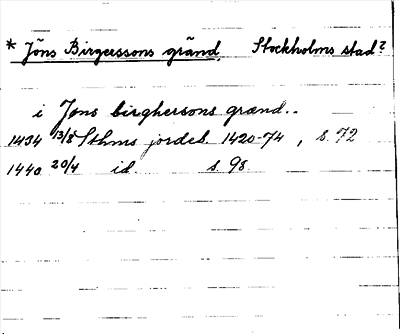 * Jöns Birgerssons gränd. Stockholms stad?
i Jøns birghersons grænd..
1434 13/8 Sthms jordeb. 1420-74, s. 72
1440 20/4 id. s. 98.